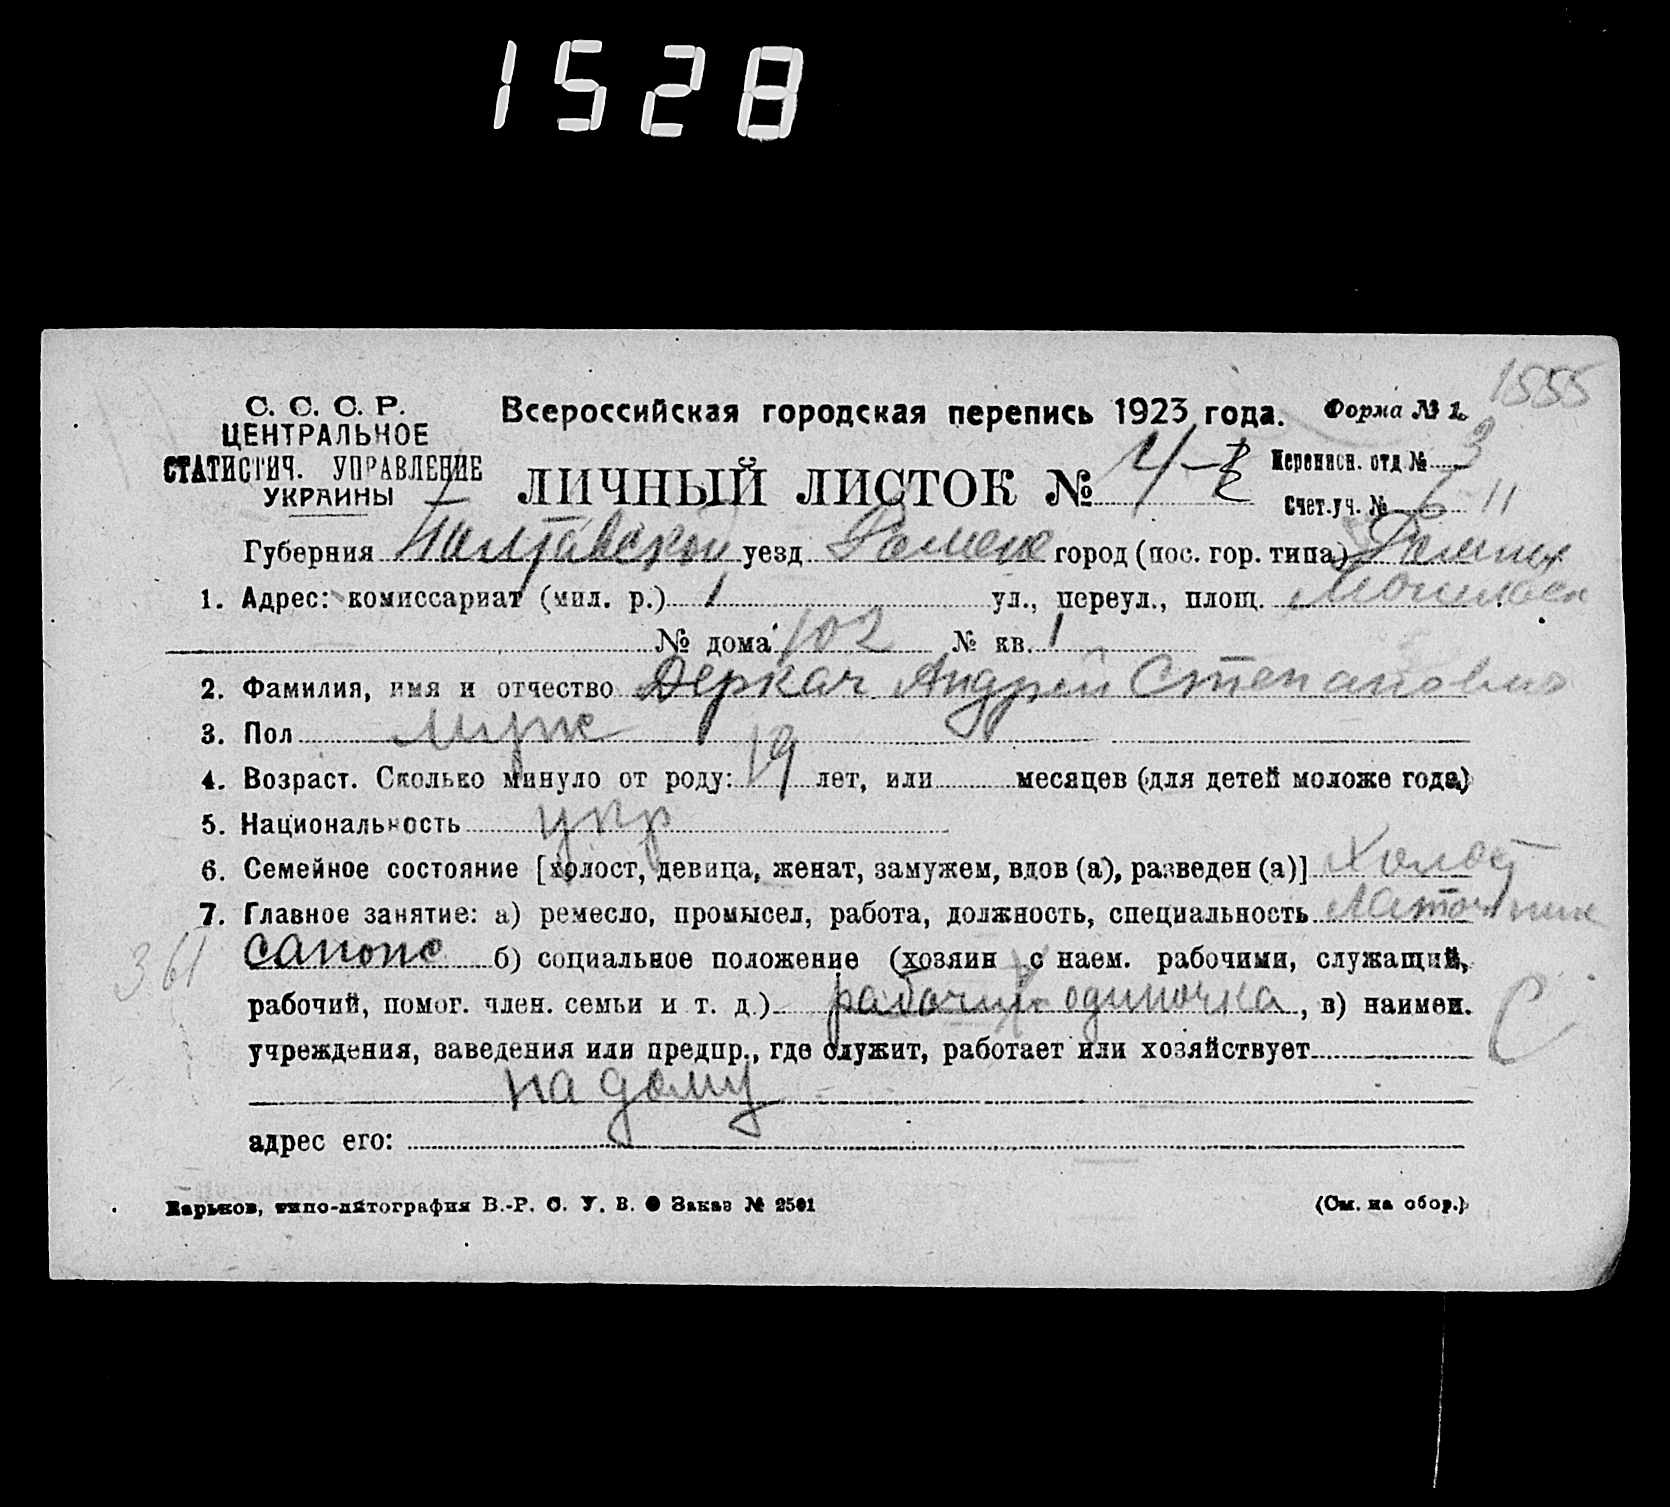 1528
1555
С. С. С. Р.
ЦЕНТРАЛЬНОЕ
СТАТИСТИЧ. УПРАВЛЕНИЕ
УКРАИНЫ
Всероссийская городская перепись 1923 года. Форма № 1.
ЛИЧНЫЙ ЛИСТОК № 4-
Переписн. отд № 3
Счет.уч. № 6 11
Губерния Полтавской уезд Роменс город (пос. гор. типа) Ромны
1. Адрес: комиссариат (мил. р.) 1 ул., переул., площ.
№ дома 102 № кв. 1
2. Фамилия, имя и отчество Деркач Андрей Степанович
3. Пол муж
4. Возраст. Сколько минуло от роду: 19 лет, или месяцев (для детей моложе года)
5. Национальность укр
6. Семейное состояние [холост, девица, женат, замужем, вдов (а), разведен (а)] холост
7. Главное занятие: а) ремесло, промысел, работа, должность, специальность
361 сапожн б) социальное положение (хозяин с наем. рабочими, служащий,
рабочий, помог. член. семьи и т. д.) рабочий одиночка, в) наимен.
С
учреждения, заведения или предпр., где служит, работает или хозяйствует
на дому
адрес его:
Харьков, типо-литография В.-Р. С. У. В. Заказ № 2501 (См. на обор.)